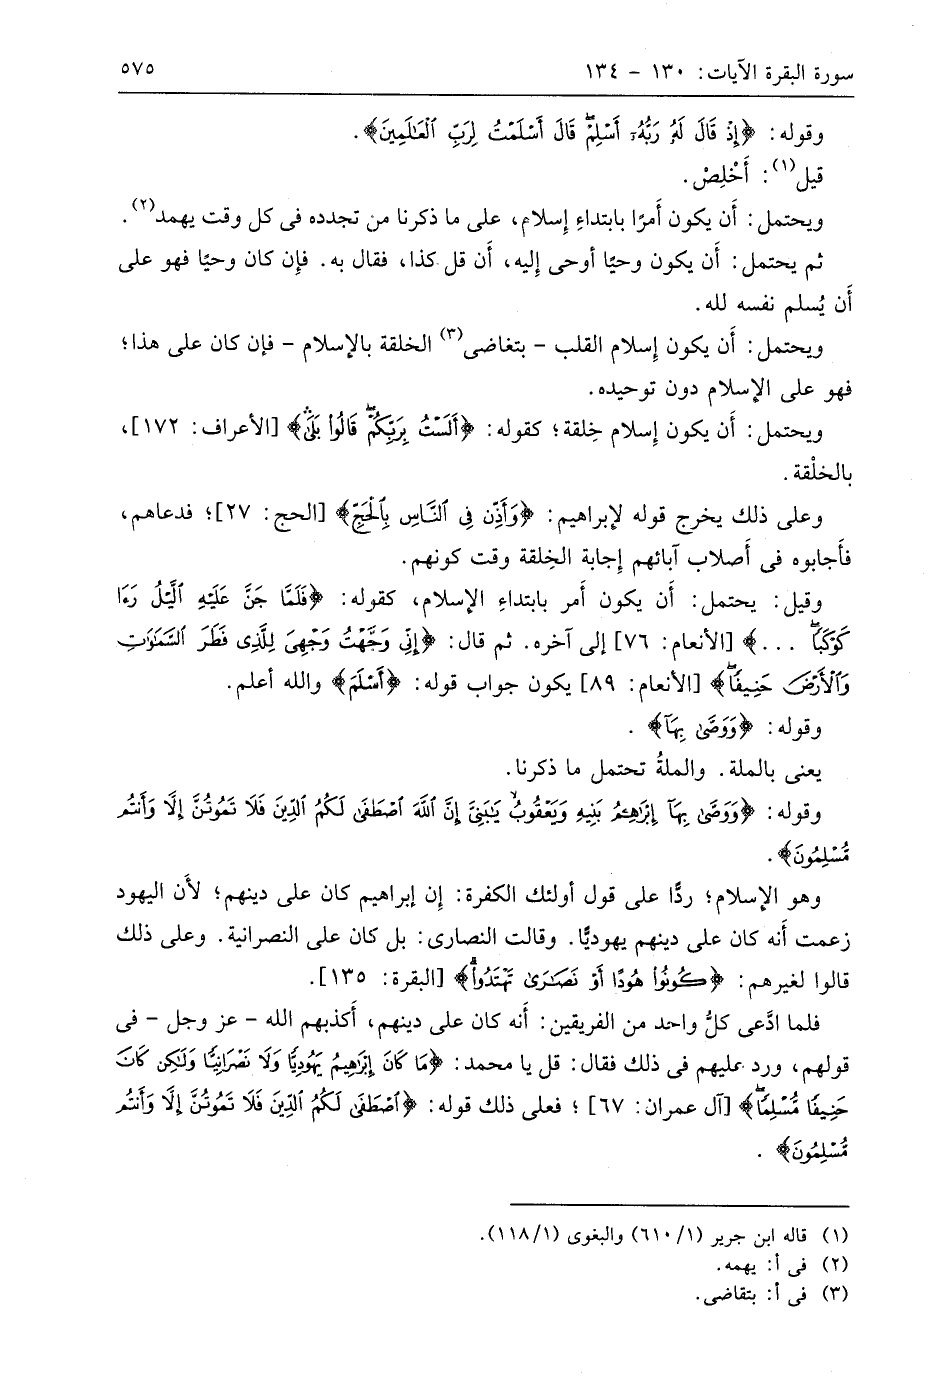 سورة البقرة الآيات: ١٣٠ – ١٣٤ ٥٧٥
وقوله: ﴿إِذْ قَالَ لَهُۥ رَبُّهُۥٓ أَسْلِمْ قَالَ أَسْلَمْتُ لِرَبِّ ٱلْعَٰلَمِينَ﴾.
قيل(١): أَخْلِصْ.
ويحتمل: أَن يكون أَمرًا بابتداءِ إِسلام، على ما ذكرنا من تجدده فى كل وقت يهمد(٢).
ثم يحتمل: أَن يكون وحيًا أوحى إليه، أَن قل كذا، فقال به. فإِن كان وحيًا فهو على
أَن يُسلم نفسه لله.
ويحتمل: أَن يكون إِسلام القلب – بتغاضى(٣) الخلقة بالإِسلام – فإن كان على هذا؛
فهو على الإِسلام دون توحيده.
ويحتمل: أَن يكون إسلام خِلقة؛ كقوله: ﴿أَلَسْتُ بِرَبِّكُمْ قَالُوا۟ بَلَىٰ﴾ [الأعراف: ١٧٢]،
بالخلْقة.
وعلى ذلك يخرج قوله لإبراهيم: ﴿وَأَذِّن فِى ٱلنَّاسِ بِٱلْحَجِّ﴾ [الحج: ٢٧]؛ فدعاهم،
فأَجابوه فى أَصلاب آبائهم إجابة الخِلقة وقت كونهم.
وقيل: يحتمل: أَن يكون أَمر بابتداءِ الإسلام، كقوله: ﴿فَلَمَّا جَنَّ عَلَيْهِ ٱلَّيْلُ رَءَا
كَوْكَبًا ...﴾ [الأنعام: ٧٦] إلى آخره. ثم قال: ﴿إِنِّى وَجَّهْتُ وَجْهِىَ لِلَّذِى فَطَرَ ٱلسَّمَٰوَٰتِ
وَٱلْأَرْضَ حَنِيفًا﴾ [الأنعام: ٨٩] يكون جواب قوله: ﴿أَسْلَمَ﴾ والله أعلم.
وقوله: ﴿وَوَصَّىٰ بِهَآ﴾ .
يعنى بالملة. والملةُ تحتمل ما ذكرنا.
وقوله: ﴿وَوَصَّىٰ بِهَآ إِبْرَٰهِـۧمُ بَنِيهِ وَيَعْقُوبُ يَٰبَنِىَّ إِنَّ ٱللَّهَ ٱصْطَفَىٰ لَكُمُ ٱلدِّينَ فَلَا تَمُوتُنَّ إِلَّا وَأَنتُم
مُّسْلِمُونَ﴾.
وهو الإِسلام؛ ردًّا على قول أولئك الكفرة: إن إبراهيم كان على دينهم؛ لأَن اليهود
زعمت أَنه كان على دينهم يهوديًّا. وقالت النصارى: بل كان على النصرانية. وعلى ذلك
قالوا لغيرهم: ﴿كُونُوا۟ هُودًا أَوْ نَصَٰرَىٰ تَهْتَدُوا۟﴾ [البقرة: ١٣٥].
فلما ادَّعى كلُّ واحد من الفريقين: أَنه كان على دينهم، أَكذبهم الله – عز وجل – فى
قولهم، ورد عليهم فى ذلك فقال: قل يا محمد: ﴿مَا كَانَ إِبْرَٰهِيمُ يَهُودِيًّا وَلَا نَصْرَانِيًّا وَلَٰكِن كَانَ
حَنِيفًا مُّسْلِمًا﴾ [آل عمران: ٦٧] ؛ فعلى ذلك قوله: ﴿ٱصْطَفَىٰ لَكُمُ ٱلدِّينَ فَلَا تَمُوتُنَّ إِلَّا وَأَنتُم
مُّسْلِمُونَ﴾ .
(١) قاله ابن جرير (١/ ٦١٠) والبغوى (١١٨/١).
(٢) فى أ: يهمه.
(٣) فى أ: بتقاضى.